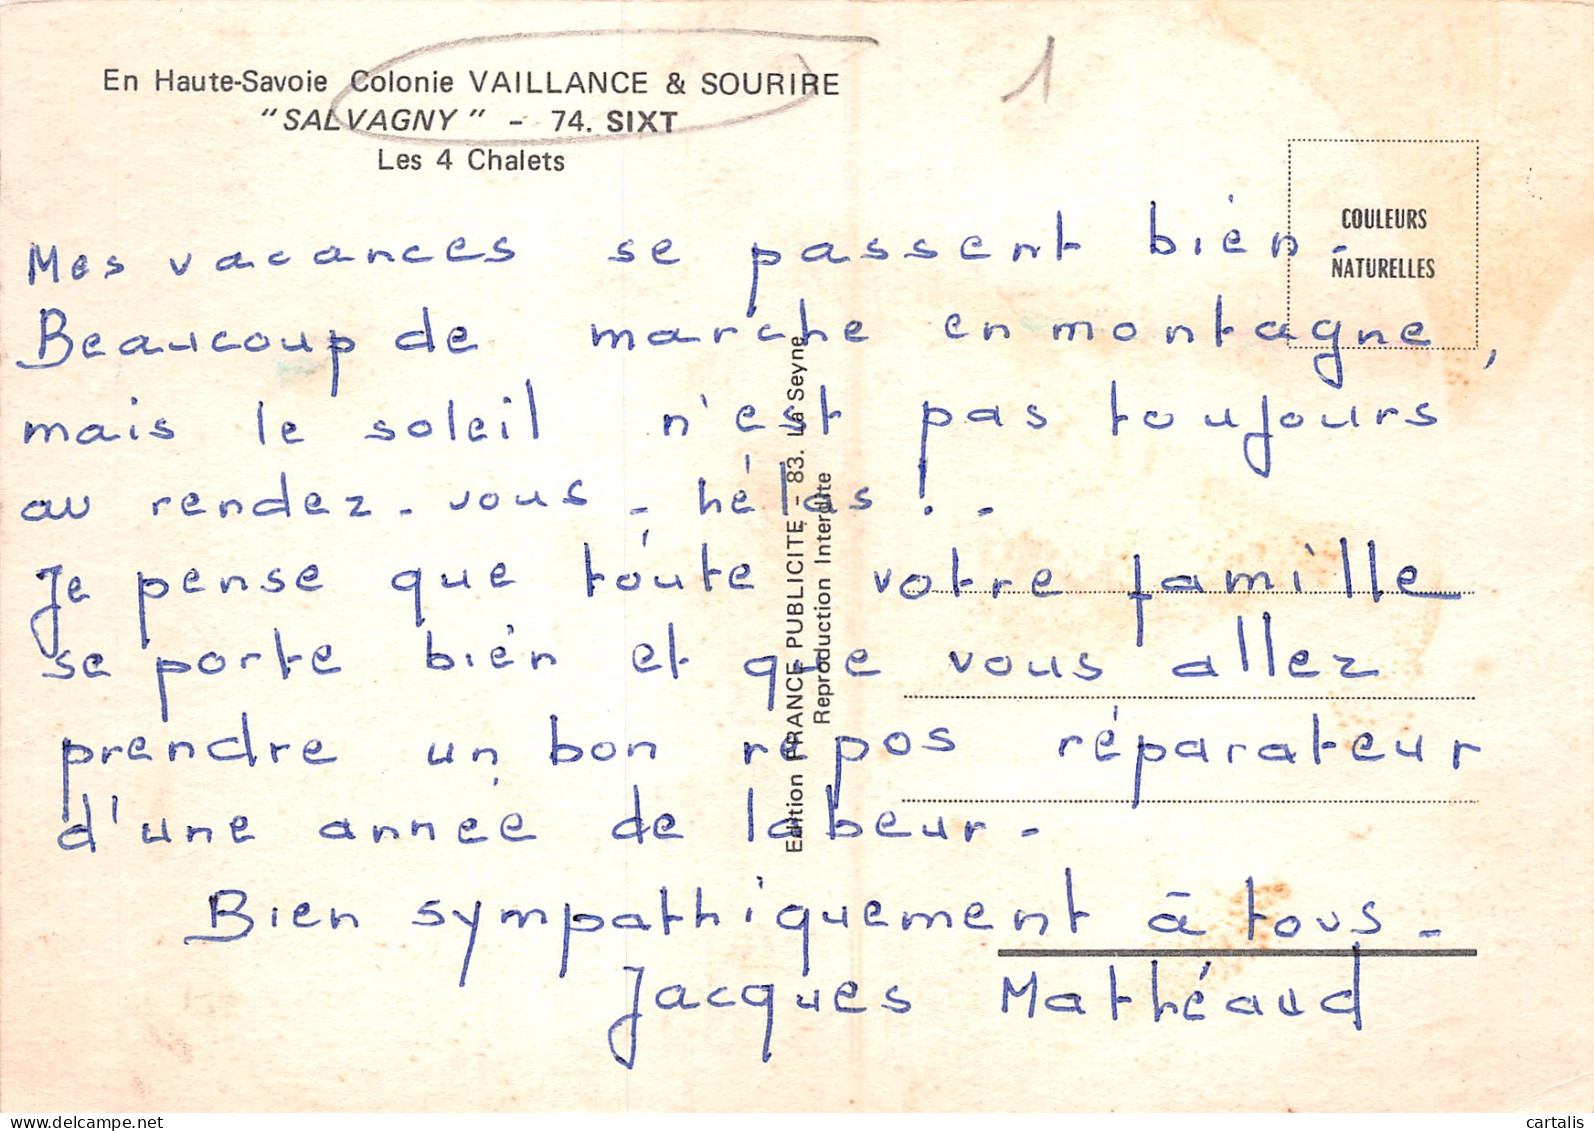 En Haute-Savoie Colonie VAILLANCE & SOURIRE
"SALVAGNY" - 74. SIXT
Les 4 Chalets
1
COULEURS
NATURELLES
Mes vacances se passent bien.
Beaucoup de marche en montagne,
mais le soleil n'est pas toujours
au rendez-vous - hélas ! -
Je pense que toute votre famille
se porte bien et que vous allez
prendre un bon repos réparateur
d'une année de labeur -
Bien sympathiquement à tous -
Jacques Mathéaud
Edition FRANCE PUBLICITE - 83. La Seyne
Reproduction Interdite
cartalis.com